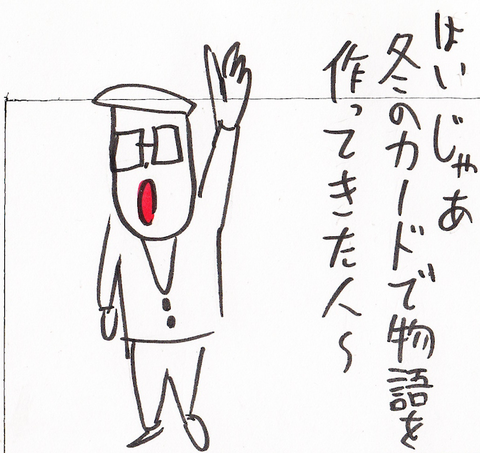 はい じゃあ
冬のカードで物語を
作ってきた人〜